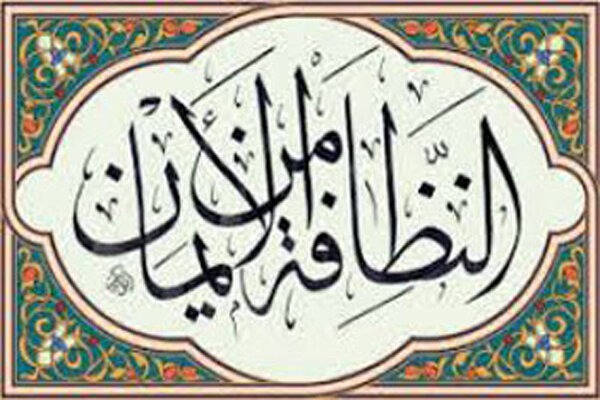 النظافة من الأيمان